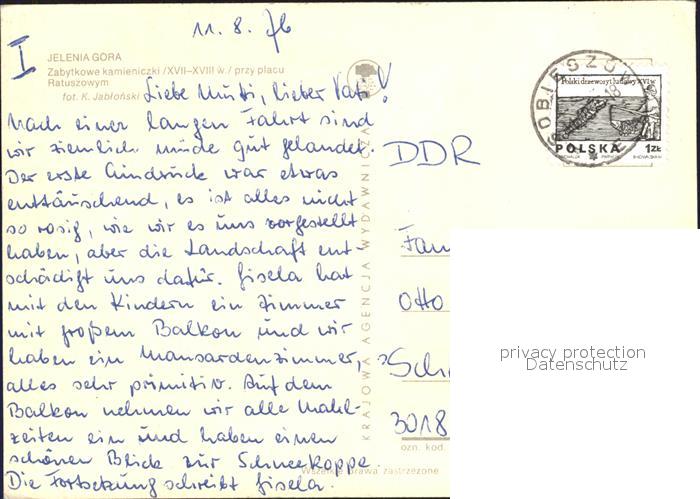 11. 8. 76
I
JELENIA GÓRA
Zabytkowe kamieniczki /XVII–XVIII w./ przy placu
Ratuszowym
fot. K. Jabłoński
Liebe Mutti, lieber Vati!
Nach einer langen Fahrt sind
wir ziemlich müde gut gelandet.
Der erste Eindruck war etwas
enttäuschend, es ist alles nicht
so rosig, wie wir es uns vorgestellt
haben, aber die Landschaft ent-
schädigt uns dafür. Gisela hat
mit den Kindern ein Zimmer
mit großem Balkon und wir
haben ein Mansardenzimmer,
alles sehr primitiv. Auf dem
Balkon nehmen wir alle Mahl-
zeiten ein und haben einen
schönen Blick zur Schneekoppe.
Die Fortsetzung schreibt Gisela.
KRAJOWA AGENCJA WYDAWNICZA
Wszelkie prawa zastrzeżone
Polski drzeworyt ludowy XVI w.
POLSKA 1ZŁ
DDR
Fam
Otto
Sch
3018
ozn. kod.
privacy protection
Datenschutz